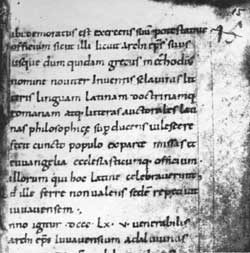 ibi demoratus est exercens suū potestative
officium sicut illi licuit archi eps suus
usque dum quidam grecus methodius
nomine noviter inventis sclavinis lit
teris linguam latinam doctrinamq;
romanam atq; litteras auctorales lati
nas philosophice sup ducens vilescere
fecit cuncto populo ex parte missas et
euvangelia ecclesiasticumq; officium
illorum qui hoc latine celebraverunt
d ille ferre non valens sedem repetivit
iuvavensem.
nno igitur dccc.lx.v venerabilis
archi eps iuvavensium adaluuinus